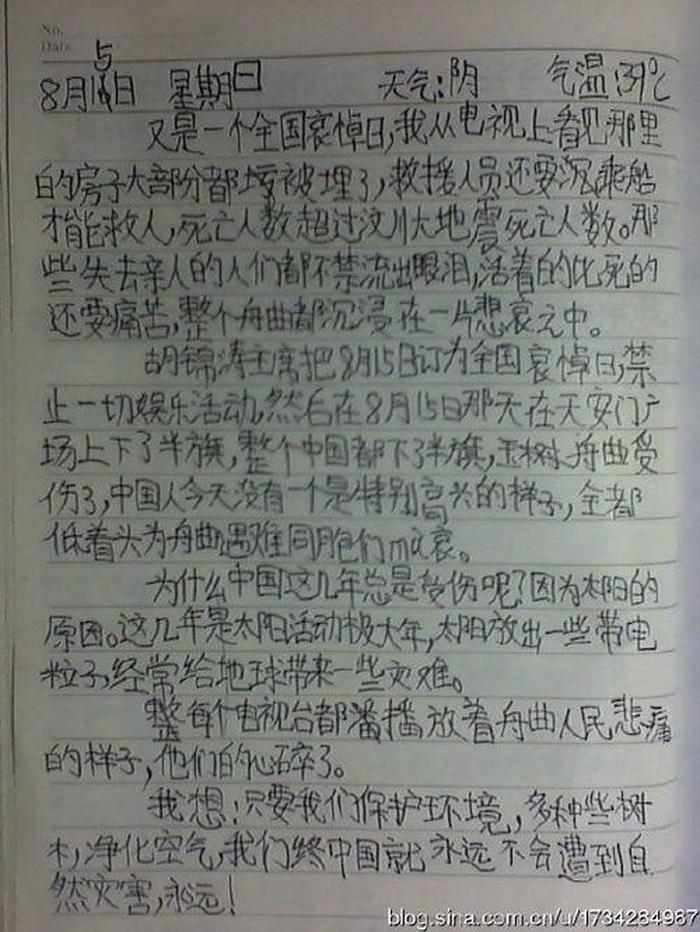 No.
Date
8月15日 星期日 天气:阴 气温:39℃
又是一个全国哀悼日,我从电视上看见那里
的房子大部分都被埋了,救援人员还要沉乘船
才能救人,死亡人数超过汶川大地震死亡人数。那
些失去亲人的人们都不禁流出眼泪,活着的比死的
还要痛苦,整个舟曲都沉浸在一片悲哀之中。
胡锦涛主席把8月15日订为全国哀悼日,禁
止一切娱乐活动,然后在8月15日那天在天安门广
场上下了半旗,整个中国都下了半旗,玉树、舟曲受
伤了,中国人今天没有一个是特别高兴的样子,全都
低着头为舟曲遇难同胞们mò哀。
为什么中国这几年总是受伤呢?因为太阳的
原因。这几年是太阳活动极大年,太阳放出一些带电
粒子,经常给地球带来一些灾难。
整每个电视台都播放着舟曲人民悲痛
的样子,他们的心碎了。
我想:只要我们保护环境,多种些树
木,净化空气,我们终中国就永远不会遭到自
然灾害,永远!
blog.sina.com.cn/u/1734284987